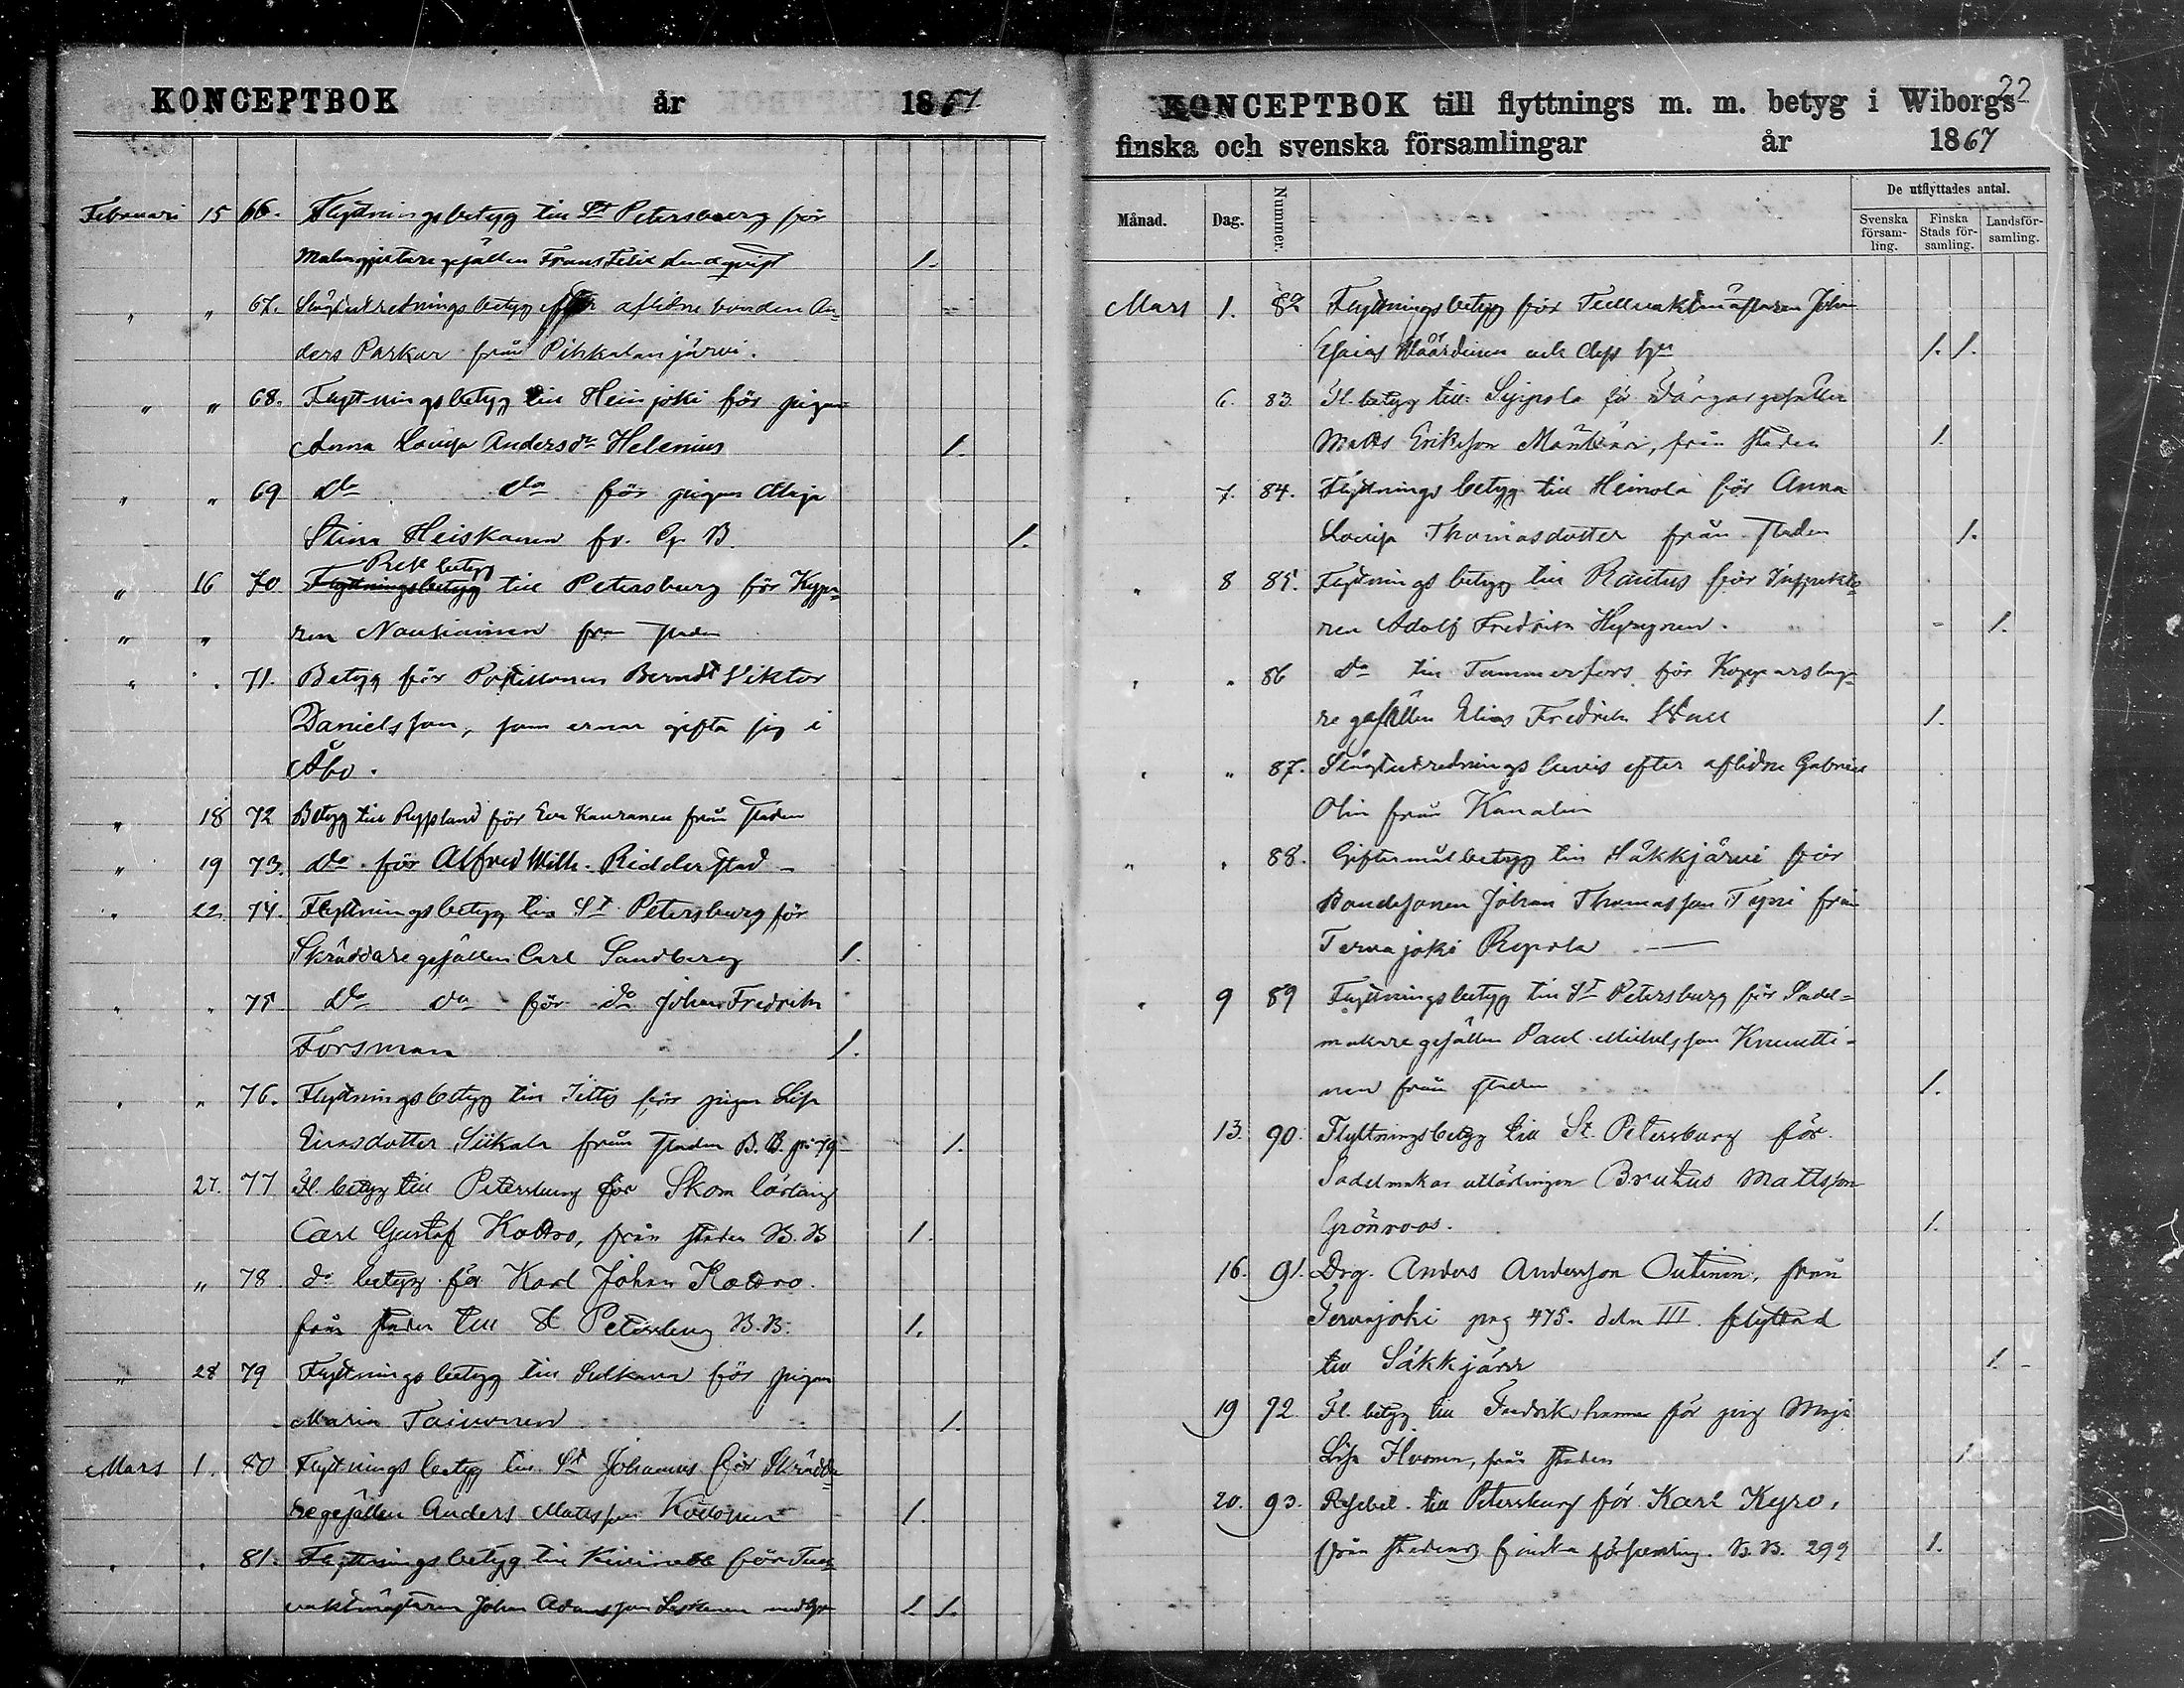 KONCEPTBOK år 1867
Februari 15 66. Flyttningsbetyg till St Petersburg för
gesällen Frans Felix Lindqvist 1.
" " 67. betyg efter aflidne bonden An-
ders Parkar från Pihkalanjärvi.
" " 68. Flyttningsbetyg till Heinjoki för pigan
Anna Lovisa Andersdr Helenius 1.
" " 69 do do för pigan Maja
Stina Heiskanen fr. B. 1.
Rese betyg
" 16 70 Flyttningsbetyg till Petersburg för
" " Nousiainen från staden
" " 71. Betyg för Postillonen Berndt Viktor
Danielsson, som ernar gifta sig i
Åbo.
" 18 72 Betyg till Ryssland för Eva Kauranen från staden
" 19 73. do för Alfred Wilh. Ridderstad
" 22. 74. Flyttningsbetyg till St Petersburg för
Skräddaregesällen Carl Sandberg 1.
" " 75. do do för do Johan Fredrik
Forsman 1.
" " 76. Flyttningsbetyg till Ittis för pigan Lisa
dotter Siikala från staden B. B. 1.
27. 77 Fl. betyg till Petersburg för Skom lärling
Carl Gustaf Kottro, från staden B. B 1.
" 78. do betyg för Karl Johan Kottro
från staden till St Petersburg B. B. 1.
" 28 79 Flyttningsbetyg till Sulkava för pigan
Maria Taivonen 1.
Mars 1. 80 Flyttningsbetyg till St Johannes för Skrädda-
regesällen Anders Mattsson 1.
" " 81. Flyttningsbetyg till för Tull-
vaktmästaren Johan Adamsson 1. 1.
22
KONCEPTBOK till flyttnings m. m. betyg i Wiborgs
finska och svenska församlingar år 1867
Månad. Dag. Nummer. De utflyttades antal.
Svenska försam-ling. Finska Stads för-samling. Landsför-samling.
Mars 1. 82 Flyttningsbetyg för Tullvaktmästaren Johan
Esaias och dess 1. 1.
6. 83 Fl. betyg till Sippola för Färgargesällen
Matts Eriksson från staden 1.
" 7. 84. Flyttnings betyg till Heinola för Anna
Lovisa Thomasdotter från staden 1.
" 8 85. Flyttnings betyg till Rautus för Inspekto-
ren Adolf Fredrik 1.
" " 86 do till Tammerfors för Kopparslaga-
regesällen Elias Fredrik 1.
" " 87. efter aflidne Gabriel
Olin från Kanalen
" " 88. Giftermålbetyg till Säkkjärvi för
Bondesonen Johan Thomasson från
Tervajoki Repola
" 9 89 Flyttningsbetyg till St Petersburg för Sadel-
makaregesällen Paul Michelsson Knuutti-
nen från staden 1.
13. 90. Flyttningsbetyg till St. Petersburg för
Sadelmakar utlärlingen Brutus Mattsson
Grönroos. 1.
16. 91. Drg. Anders Andersson Outinen, från
Tervajoki pag 475. delen III. flyttad
till Säkkjärvi 1.
19 92 Fl. betyg till Fredrikshamn för pig Maja
Lisa från staden 1
20. 93. till Petersburg för Karl Kyrö,
från stadens finska församling. B. B. 299 1.